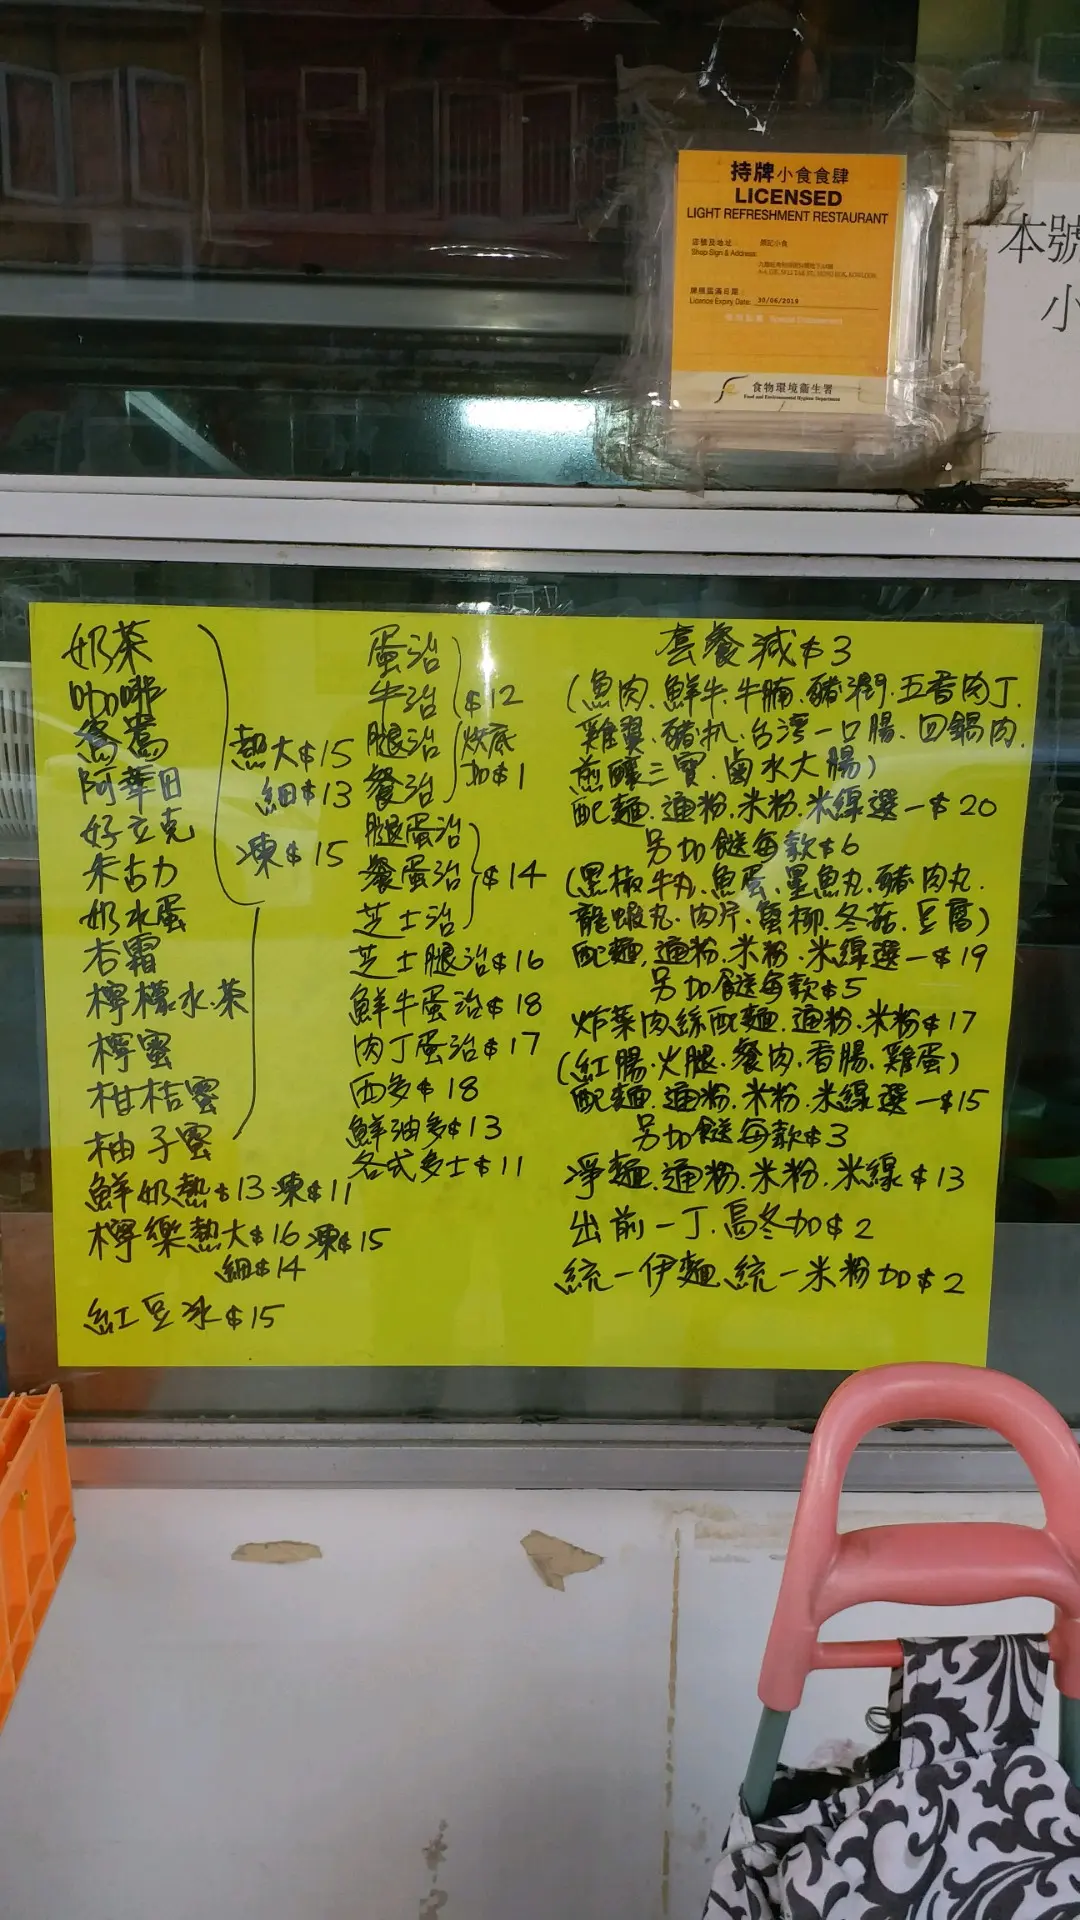 持牌小食食肆
LICENSED
LIGHT REFRESHMENT RESTAURANT
店號及地址:
Shop Sign & Address:
顏記小食
牌照屆滿日期:
Licence Expiry Date: 30/06/2019
食物環境衞生署
Food and Environmental Hygiene Department
本號
小
奶茶
咖啡
鴛鴦
阿華田
好立克
朱古力
奶水蛋
杏霜
檸檬水.茶
檸蜜
柑桔蜜
柚子蜜
熱大$15
細$13
凍$15
鮮奶熱$13凍$11
檸樂熱大$16凍$15
細$14
紅豆冰$15
蛋治
牛治
腿治
餐治
$12
烘底
加$1
腿蛋治
餐蛋治
芝士治
$14
芝士腿治$16
鮮牛蛋治$18
肉丁蛋治$17
西多$18
鮮油多$13
各式多士$11
套餐減$3
(魚肉.鮮牛.牛腩.豬潤.五香肉丁.
雞翼.豬扒.台灣一口腸.回鍋肉.
煎釀三寶.鹵水大腸)
配麵.通粉.米粉.米線選一$20
另加餸每款$6
(黑椒牛丸.魚蛋.墨魚丸.豬肉丸.
龍蝦丸.肉片.蟹柳.冬菇.豆腐)
配麵.通粉.米粉.米線選一$19
另加餸每款$5
炸菜肉絲配麵.通粉.米粉$17
(紅腸.火腿.餐肉.香腸.雞蛋)
配麵.通粉.米粉.米線選一$15
另加餸每款$3
淨麵.通粉.米粉.米線$13
出前一丁.烏冬加$2
統一伊麵.統一米粉加$2